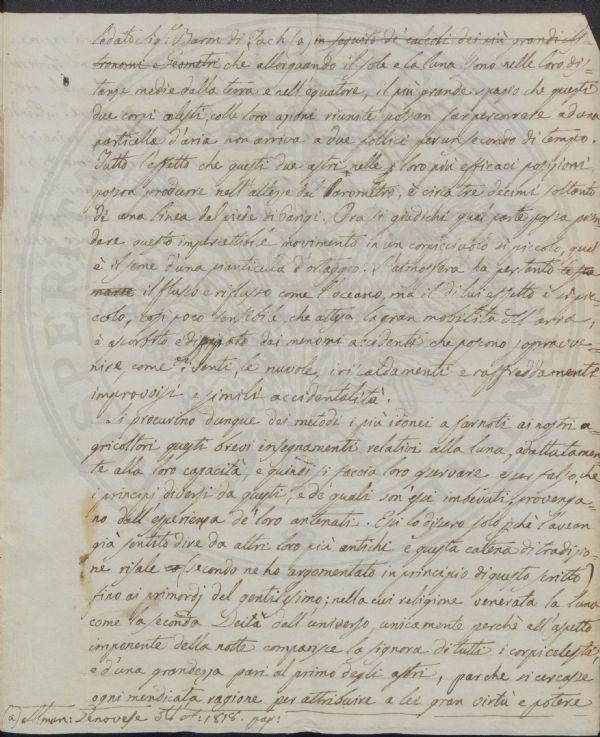 lodato Sig.r Baron di Zach (a) in seguito de' calcoli dei più grandi As-
tronomi e Geometri che allorquando il Sole e la Luna sono nelle loro dis-
tanze medie dalla terra e nell'equatore, il più grande spazio che questi
due corpi celesti, colle loro azioni riunite possan far percorrere ad una
particella d'aria non arriva a due pollici per un secondo di tempo.
Tutto l'effetto che questi due astri, nelle loro più efficaci posizioni
posson produrre nell'altezza del Barometro, è circa tre decimi soltanto
di una linea del piede di Parigi. Ora si giudichi qual parte possa pren
dere questo impercettibile movimento in un corpicciuolo sì piccolo, qual
è il seme d'una pianticella d'ortaggio. L'atmosfera ha pertanto
il flusso e riflusso come l'oceano, ma il di lui effetto è sì pic-
colo, e sì poco sensibile che attesa la gran mobilità dell'aria,
è assorbito e dai menomi accidenti che possono sopravve-
nire come i venti, le nuvole, i riscaldamenti e raffreddamenti
improvvisi e simili accidentalità.
Si procurino dunque dei metodi i più idonei a far noti ai nostri a-
gricoltori questi brevi insegnamenti relativi alla luna, adattatamen
te alla loro capacità, e quindi si faccia loro osservare esser falso, che
i principj diversi da questi, e de' quali son essi imbevuti, provenga-
no dall'esperienza de' loro antenati. Essi lo dissero solo perchè l'avean
già sentito dire da altri loro più antichi e questa catena di tradizio-
ne risale (secondo ne ho argomentato in principio di questo scritto)
fino ai primordj del gentilesimo; nella cui religione venerata la luna
come la seconda Deità dell'universo, unicamente perchè all'aspetto
imponente della notte comparisce la signora di tutti i corpi celesti,
e d'una grandezza pari al primo degli astri, parche si cercasse
ogni mendicata ragione per attribuire a lei gran virtù e potere
(a) Alman: Genovese 1818. pag: